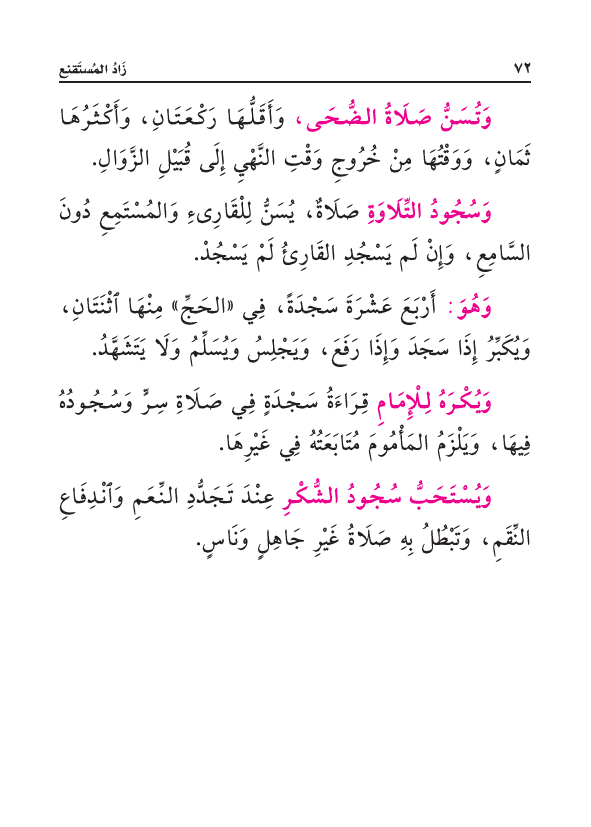 ٧٢ زَادُ المُستَقنِعِ
وَتُسَنُّ صَلَاةُ الضُّحَى، وَأَقَلُّهَا رَكْعَتَانِ، وَأَكْثَرُهَا
ثَمَانٍ، وَوَقْتُهَا مِنْ خُرُوجِ وَقْتِ النَّهْيِ إِلَى قُبَيْلِ الزَّوَالِ.
وَسُجُودُ التِّلَاوَةِ صَلَاةٌ، يُسَنُّ لِلْقَارِىءِ وَالمُسْتَمِعِ دُونَ
السَّامِعِ، وَإِنْ لَم يَسْجُدِ القَارِئُ لَمْ يَسْجُدْ.
وَهُوَ: أَرْبَعَ عَشْرَةَ سَجْدَةً، فِي «الحَجِّ» مِنْهَا ٱثْنَتَانِ،
وَيُكَبِّرُ إِذَا سَجَدَ وَإِذَا رَفَعَ، وَيَجْلِسُ وَيُسَلِّمُ وَلَا يَتَشَهَّدُ.
وَيُكْرَهُ لِلْإِمَامِ قِرَاءَةُ سَجْدَةٍ فِي صَلَاةِ سِرٍّ وَسُجُودُهُ
فِيهَا، وَيَلْزَمُ المَأْمُومَ مُتَابَعَتُهُ فِي غَيْرِهَا.
وَيُسْتَحَبُّ سُجُودُ الشُّكْرِ عِنْدَ تَجَدُّدِ النِّعَمِ وَٱنْدِفَاعِ
النِّقَمِ، وَتَبْطُلُ بِهِ صَلَاةُ غَيْرِ جَاهِلٍ وَنَاسٍ.